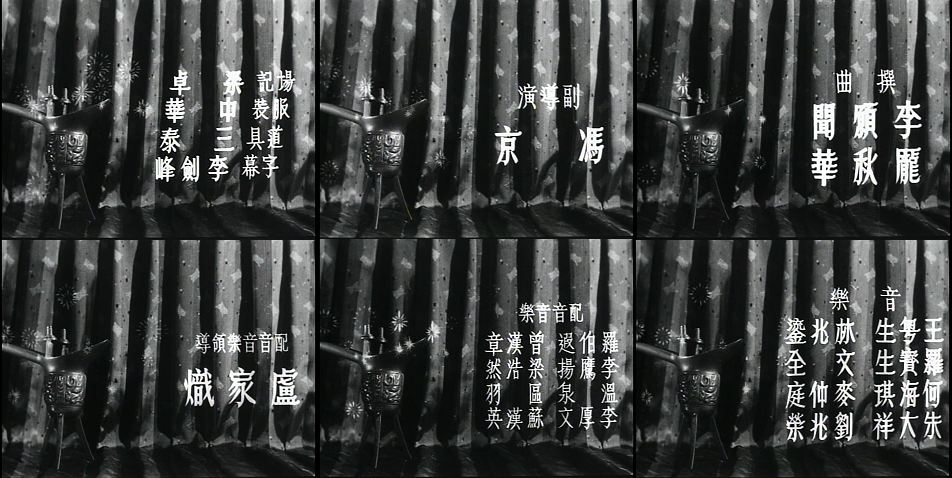 場記 梁卓
服裝 中華
道具 三泰
字幕 李劍峰
副導演
馮京
撰曲
李願聞
龐秋華
配音音樂領導
盧家熾
配音音樂
羅伯遐 曾漢章
李鷹揚 梁浩然
溫泉 區羽
李厚文 蘇漢英
音樂
王粵生 林兆鎏
羅寶生 文全
何海琪 麥仲庭
朱大祥 劉兆榮